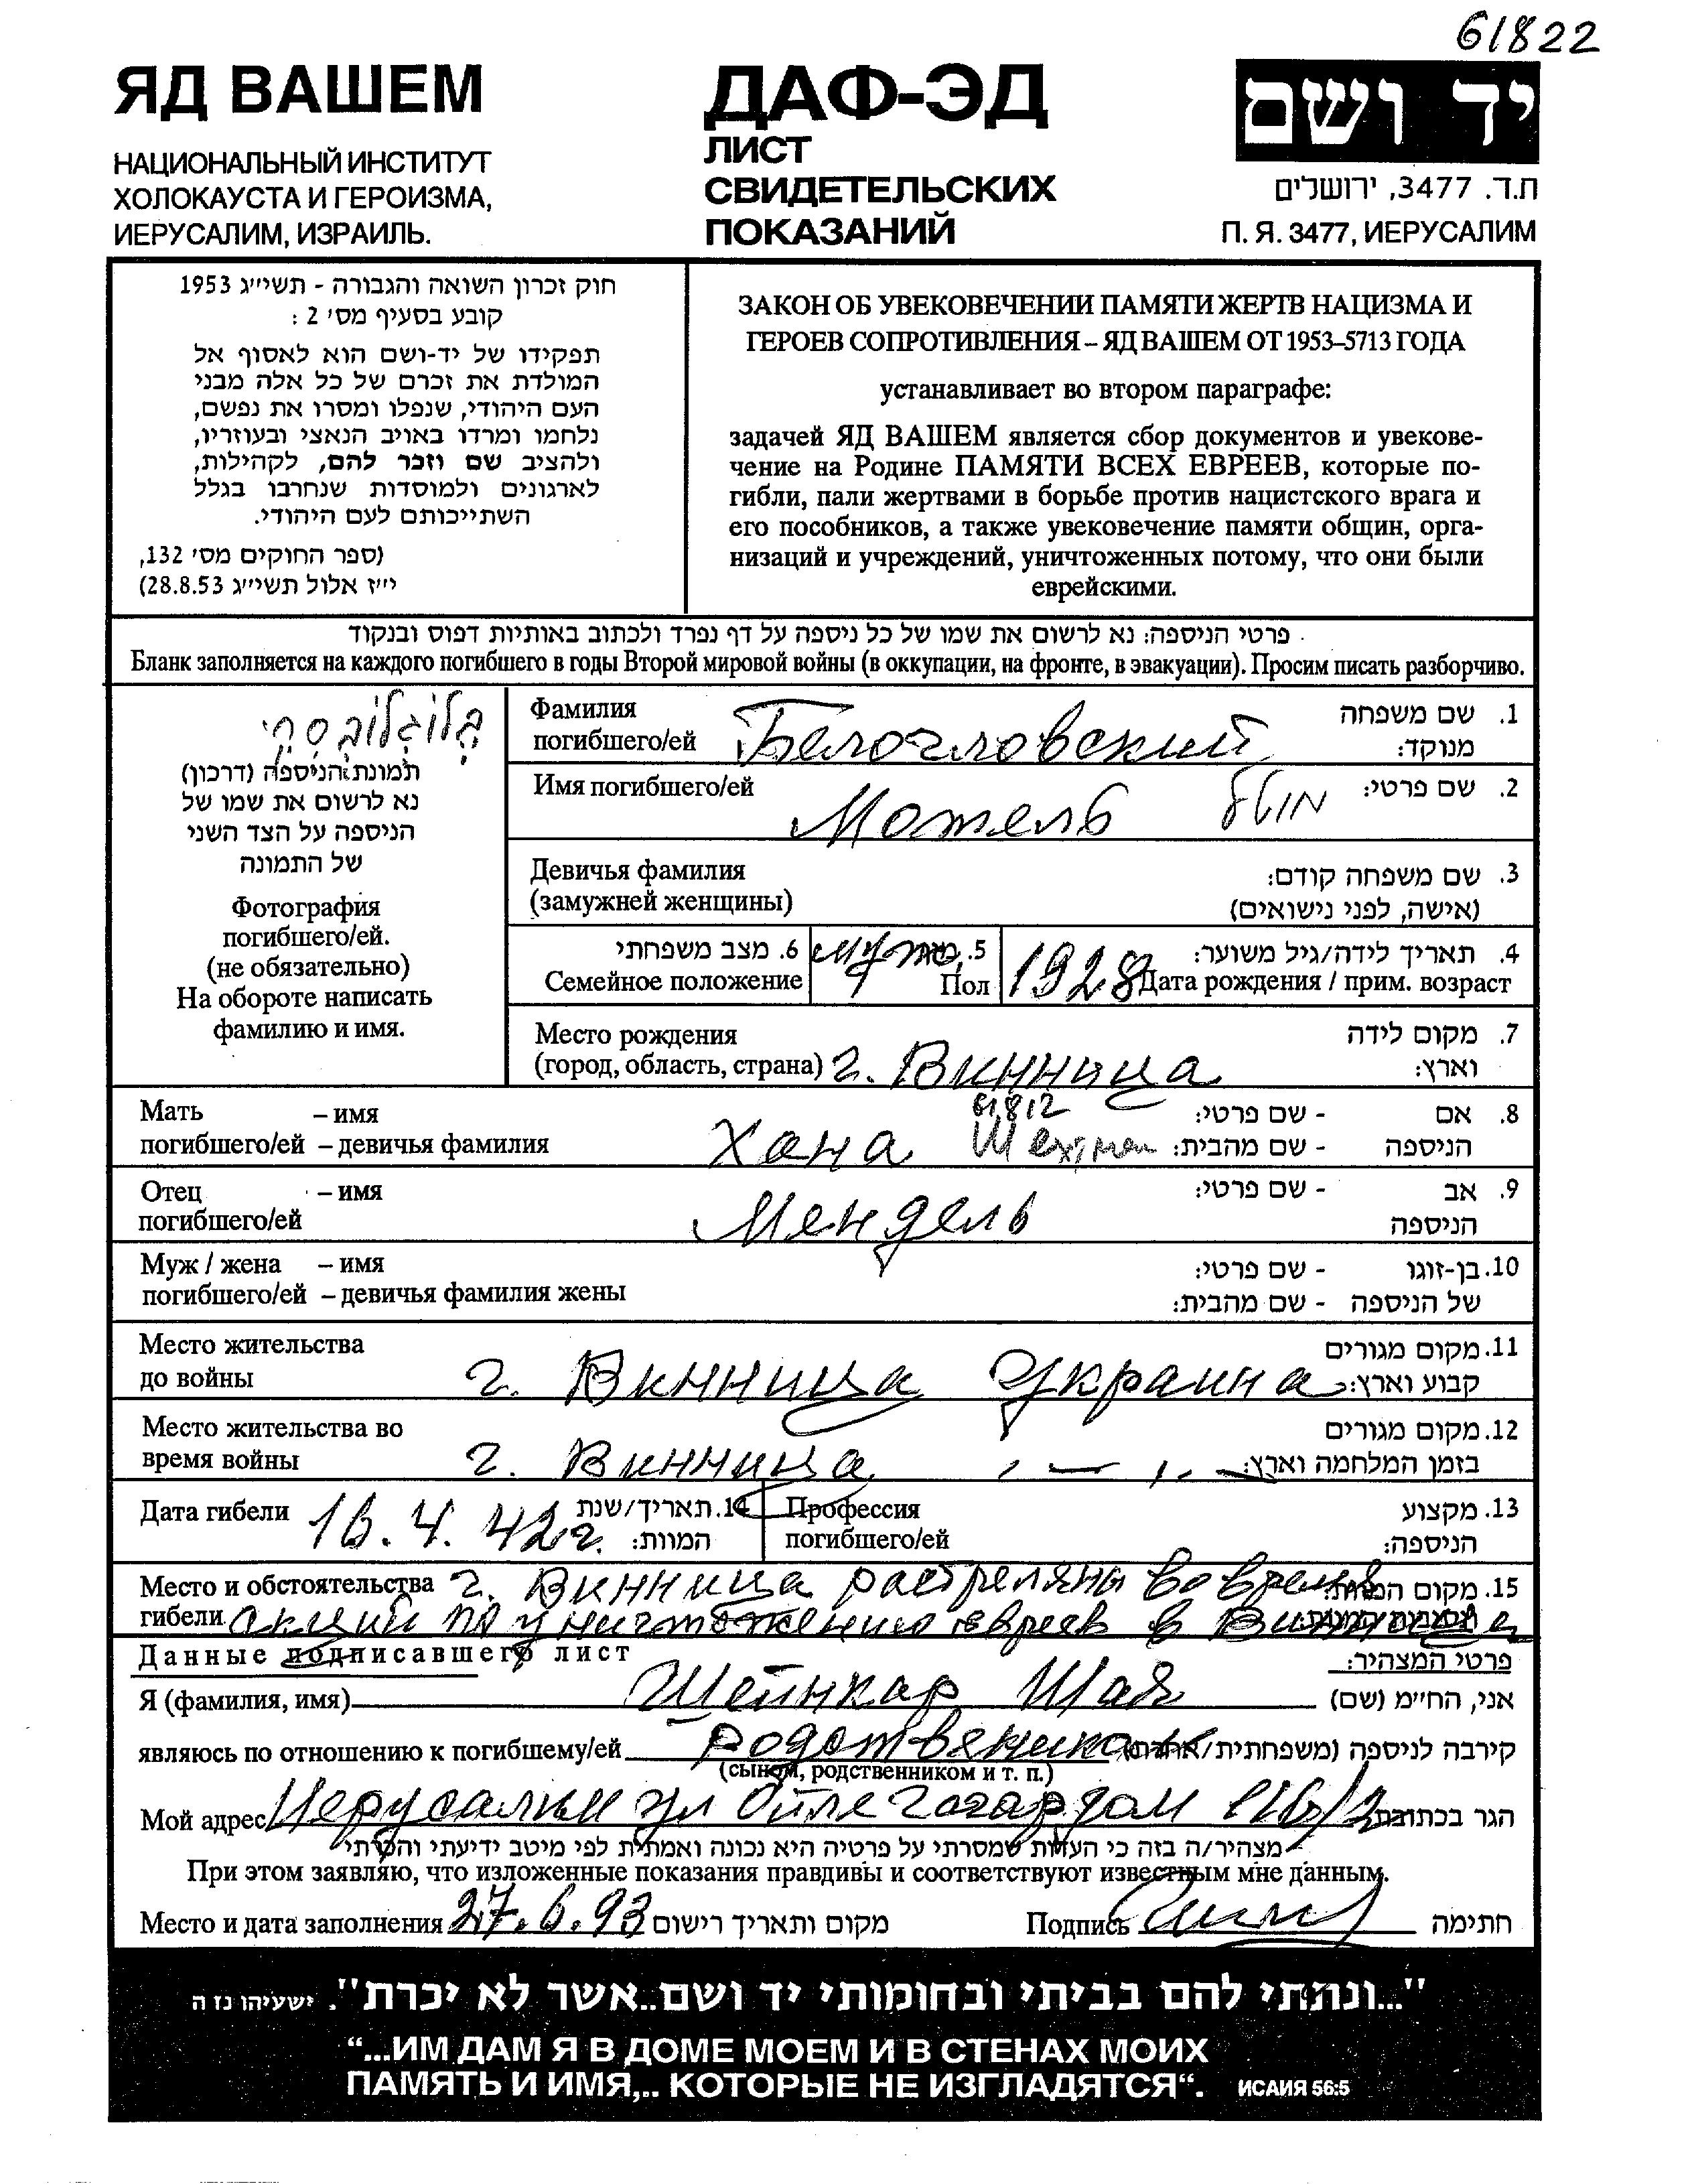 61822
ЯД ВАШЕМ
НАЦИОНАЛЬНЫЙ ИНСТИТУТ
ХОЛОКАУСТА И ГЕРОИЗМА,
ИЕРУСАЛИМ, ИЗРАИЛЬ.
ДАФ-ЭД
ЛИСТ
СВИДЕТЕЛЬСКИХ
ПОКАЗАНИЙ
יד ושם
ת.ד. 3477, ירושלים
П. Я. 3477, ИЕРУСАЛИМ
חוק זכרון השואה והגבורה - תשי״ג 1953
קובע בסעיף מס׳ 2 :
תפקידו של יד-ושם הוא לאסוף אל
המולדת את זכרם של כל אלה מבני
העם היהודי, שנפלו ומסרו את נפשם,
נלחמו ומרדו באויב הנאצי ובעוזריו,
ולהציב שם וזכר להם, לקהילות,
לארגונים ולמוסדות שנחרבו בגלל
השתייכותם לעם היהודי.
(ספר החוקים מס׳ 132,
י״ז אלול תשי״ג 28.8.53)
ЗАКОН ОБ УВЕКОВЕЧЕНИИ ПАМЯТИ ЖЕРТВ НАЦИЗМА И
ГЕРОЕВ СОПРОТИВЛЕНИЯ – ЯД ВАШЕМ ОТ 1953–5713 ГОДА
устанавливает во втором параграфе:
задачей ЯД ВАШЕМ является сбор документов и увекове-
чение на Родине ПАМЯТИ ВСЕХ ЕВРЕЕВ, которые по-
гибли, пали жертвами в борьбе против нацистского врага и
его пособников, а также увековечение памяти общин, орга-
низаций и учреждений, уничтоженных потому, что они были
еврейскими.
פרטי הניספה: נא לרשום את שמו של כל ניספה על דף נפרד ולכתוב באותיות דפוס ובנקוד
Бланк заполняется на каждого погибшего в годы Второй мировой войны (в оккупации, на фронте, в эвакуации). Просим писать разборчиво.
תמונת הניספה (דרכון)
נא לרשום את שמו של
הניספה על הצד השני
של התמונה
Фотография
погибшего/ей.
(не обязательно)
На обороте написать
фамилию и имя.
Фамилия
погибшего/ей Белогловский
1. שם משפחה
מנוקד:
Имя погибшего/ей Мотель מוטל 2. שם פרטי:
Девичья фамилия
(замужней женщины)
3. שם משפחה קודם:
(אישה, לפני נישואים)
6. מצב משפחתי
Семейное положение
5. מין
Пол муж
4. תאריך לידה/גיל משוער:
1928 Дата рождения / прим. возраст
Место рождения
(город, область, страна) г. Винница
7. מקום לידה
וארץ:
Мать – имя
погибшего/ей – девичья фамилия Хана 61812 Шехтман
8. אם - שם פרטי:
הניספה - שם מהבית:
Отец – имя
погибшего/ей Мендель
9. אב - שם פרטי:
הניספה
Муж / жена – имя
погибшего/ей – девичья фамилия жены
10. בן-זוגו - שם פרטי:
של הניספה - שם מהבית:
Место жительства
до войны г. Винница Украина
11. מקום מגורים
קבוע וארץ:
Место жительства во
время войны г. Винница – " –
12. מקום מגורים
בזמן המלחמה וארץ:
Дата гибели 16.4.42г.
14. תאריך/שנת
המוות:
Профессия
погибшего/ей
13. מקצוע
הניספה:
Место и обстоятельства г. Винница растреляны во время 15. מקום המוות
гибели акции по уничтожению евреев в Виннице
Данные подписавшего лист פרטי המצהיר:
Я (фамилия, имя) Шейнкар Шая אני, הח״מ (שם)
являюсь по отношению к погибшему/ей Родственником קירבה לניספה (משפחתית/אחרת)
(сыном, родственником и т. п.)
Мой адрес Иерусалим ул дом הגר בכתובת
מצהיר/ה בזה כי העדות שמסרתי על פרטיה היא נכונה ואמתית לפי מיטב ידיעתי והכרתי
При этом заявляю, что изложенные показания правдивы и соответствуют известным мне данным.
Место и дата заполнения 27.6.93 מקום ותאריך רישום Подпись חתימה
"...ונתתי להם בביתי ובחומותי יד ושם..אשר לא יכרת". ישעיהו נז ה
“...ИМ ДАМ Я В ДОМЕ МОЕМ И В СТЕНАХ МОИХ
ПАМЯТЬ И ИМЯ,.. КОТОРЫЕ НЕ ИЗГЛАДЯТСЯ“. ИСАИЯ 56:5